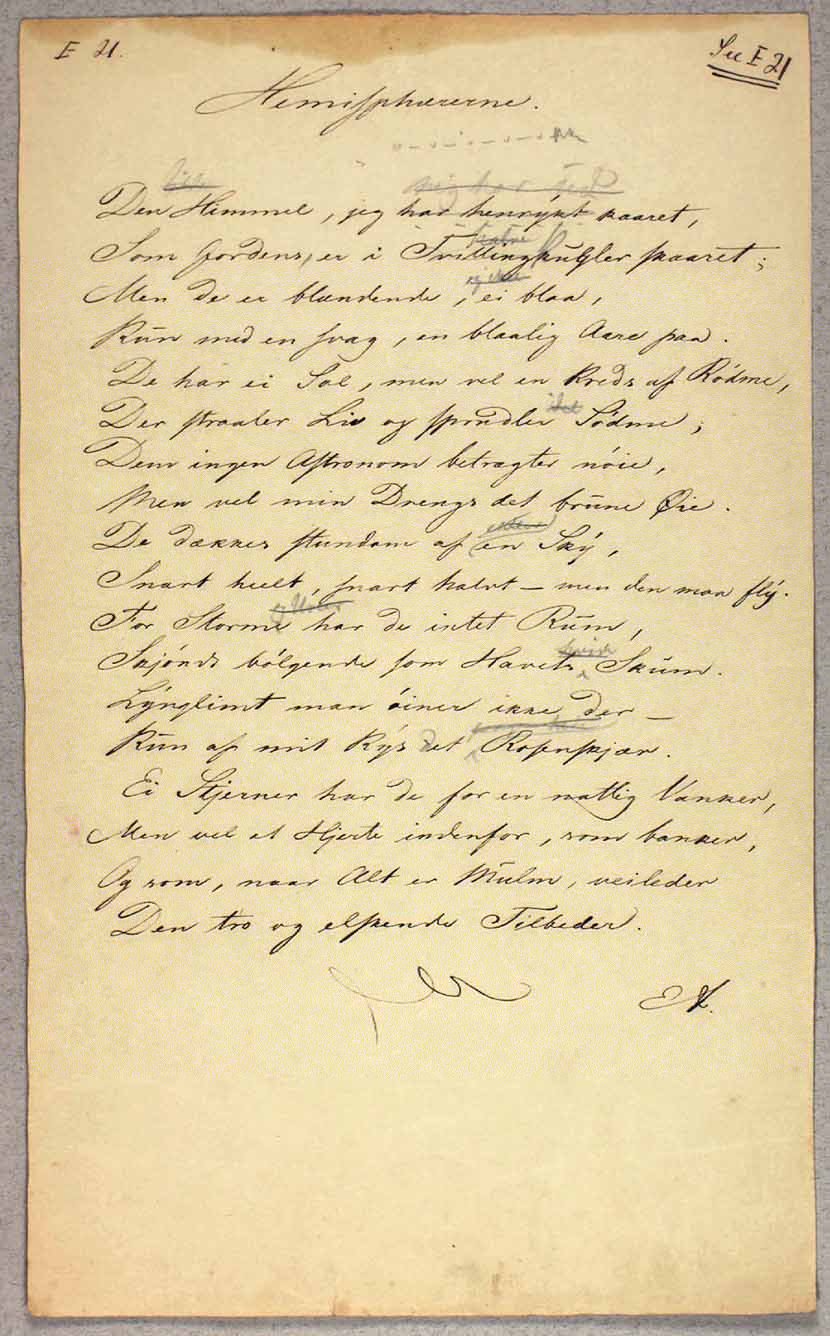 E 21.
E 21
Hemisphærerne.
Den Himmel, jeg har henrykt kaaret,
Som Jordens, er i Tvillingkugler skaaret;
Men de er blændende, ei blaa,
Kun med en svag, en blaalig Aare paa.
De har ei Sol, men vel en Kreds af Rødme,
Der straaler Liv og sprudler Sødme;
Dem ingen Astronom betragter nøie,
Men vel min Drengs det brune Øie.
De dækkes stundom af en Sky,
Snart heelt, snart halvt — men den maa fly.
For Storme har de intet Rum,
Skjøndt bølgende som Havets Skum.
Lynglimt man øiner ikke der —
Kun af mit Kys det Rosenskjær.
Ei Stjerner har de for en natlig Vanker,
Men vel et Hjerte indenfor, som banker,
Og som, naar Alt er Mulm, veileder
Den tro og elskende Tilbeder.